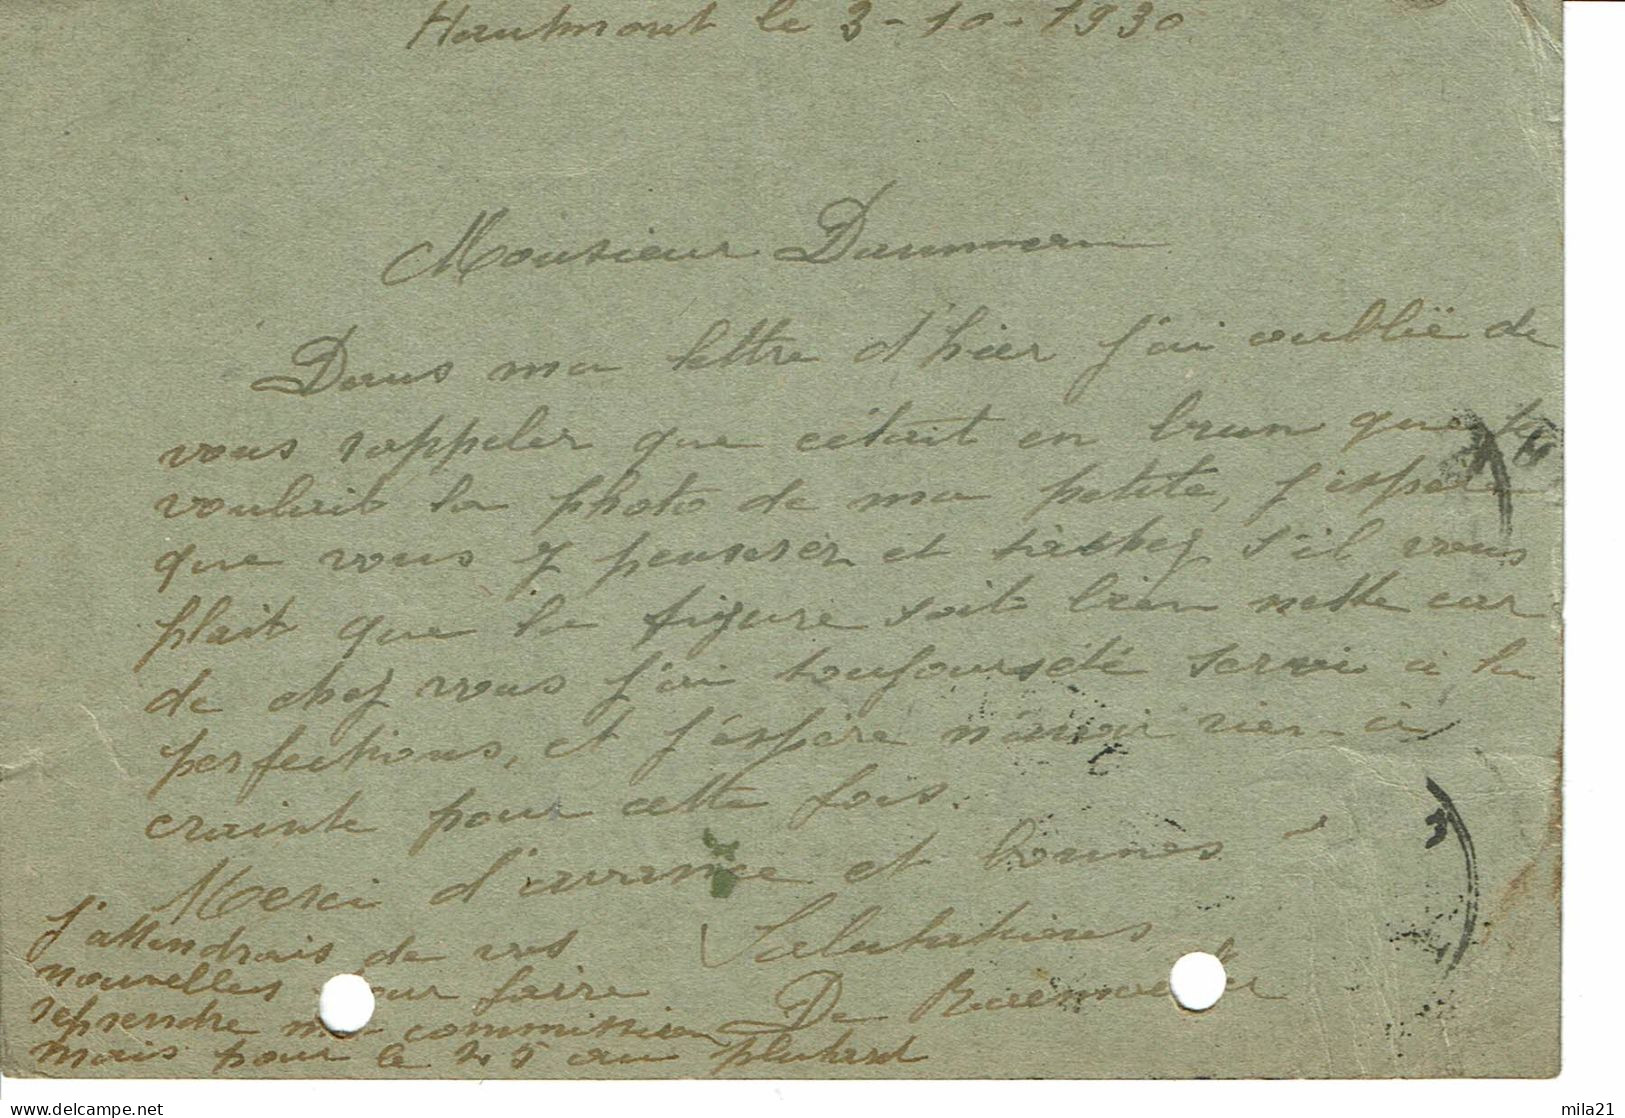 Hautmont le 3-10-1930
Monsieur
Dans ma lettre d'hier j'ai oublié de
vous rappeler que c'était en brun que je
voulait la photo de ma petite, j'espère
que vous y penserer et tachez s'il vous
plait que la figure soit bien nette car
de chez vous j'ai toujours été servi à la
perfections, et j'espère n'avoir rien à
crainte pour cette fois.
Merci d'avance et bonnes
Salutations
De
J'attendrais de vos
nouvelles pour faire
reprendre ma commission
mais pour le 25 au plutard
delcampe.net
mila21